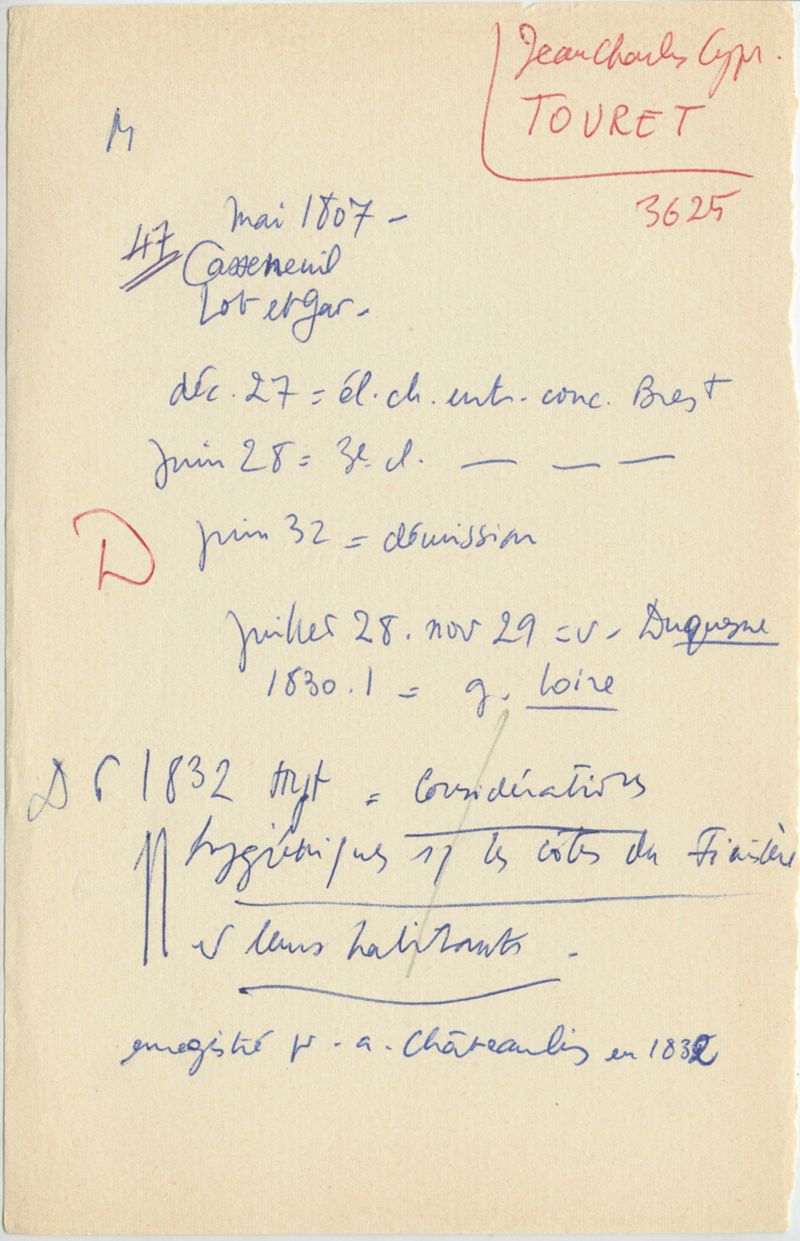 Jean Charles Cypr.
TOURET
3625
M
mai 1807 -
47
Casseneuil
Lot et Gar.
déc. 27 = él. ch. entr. conc. Brest
juin 28 = 3e cl. — — —
D
juin 32 = démission
juillet 28. nov 29 = v. Duquesne
1830.1 = g. Loire
D 6 1832 = Considérations
hygiéniques s/ les côtes du Finistère
et leurs habitants.
enregistré pr. a. Châteaulin en 1832